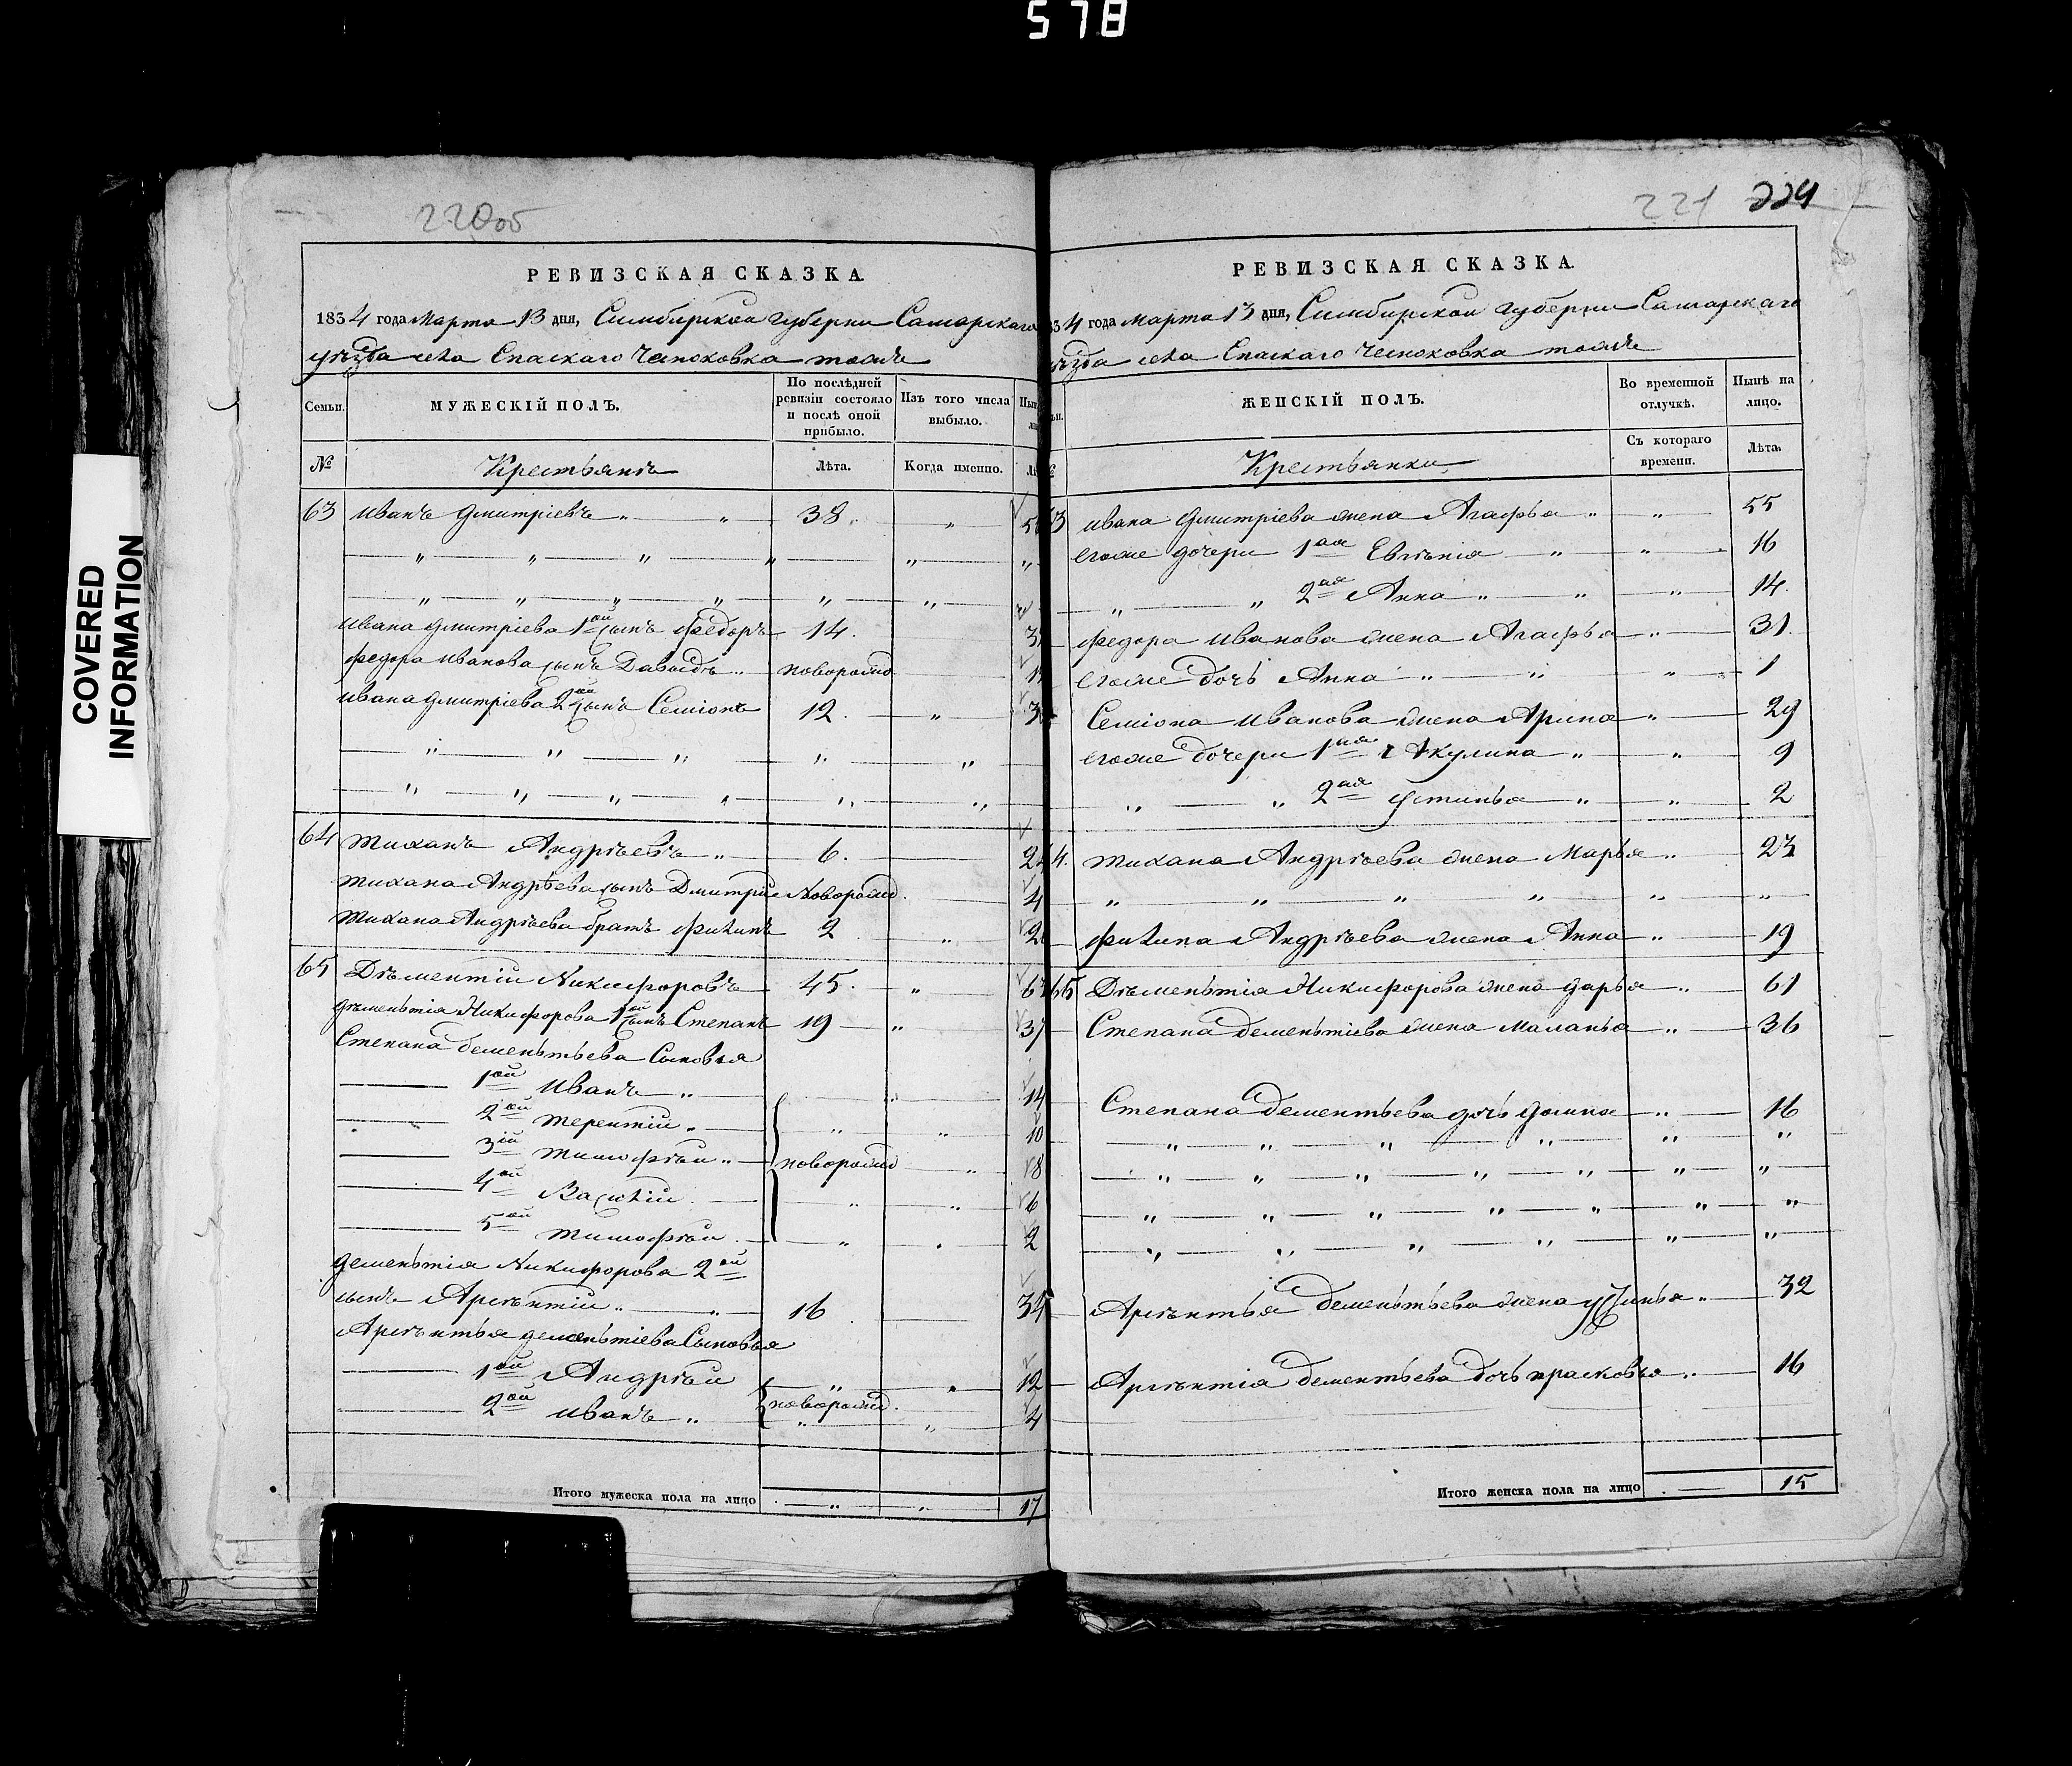 578
COVERED
INFORMATION
220об
РЕВИЗСКАЯ СКАЗКА
1834 года Марта 13 дня, Симбирской губерни Самарского
уѣзда села Спаскаго Чесноковка тожъ
Семьи. МУЖЕСКІЙ ПОЛЪ. По послѣдней ревизіи состояло и послѣ оной прибыло. Изъ того числа выбыло.
№ Крестьянъ Лѣта. Когда именно.
63 Иванъ Дмитріевъ „ „ 38. „
„ „ „ „ „ „
„ „ „ „ „ „
Ивана Дмитріева 1ой сынъ Федоръ 14.
Федора Иванова сынъ Давыдъ „ новорожд.
Ивана Дмитріева 2ой сынъ Семіонъ 12. „
„ „ „ „ „
„ „ „ „ „ „
64 Тиханъ Андрѣевъ „ 6.
Тихана Андрѣева сынъ Дмитрие Новорожд. 4
Тихана Андрѣева братъ Филипъ 2 „
65 Дѣментіи Никифоровъ 45. „
Дѣменьтія Никифорова 1ой сынъ Степанъ 19 „ 37
Степана деменьтьева Сыновья
1ой Иванъ „ „ 14
2ой Терентіи „ „ „ 10
3ій Тимофѣи „ новорожд „ 8
4ой Василіи „ „ 6
5ой Тимофѣи „ „ 2
Деменьтія Никифорова 2ой
сынъ Арсѣнтіи „ „ 16 35
Арсѣнтья деменьтіева Сыновья
1ой Андрѣи „ „ 12
2ой Иванъ „ новорожд. „ „ 4
Итого мужеска пола на лицо „ „ 17
221 224
РЕВИЗСКАЯ СКАЗКА.
34 года Марта 13 дня, Симбирской губерни Самарскаго
ѣзда села Спаскаго Чесноковка тожъ
ЖЕНСКІЙ ПОЛЪ. Во временной отлучкѣ. Нынѣ на лицо.
Крестьянки Съ котораго времени. Лѣта.
3 Ивана Дмитріева жена Агафья „ „ 55
егоже дочери 1ая Евгѣнія „ „ 16
„ „ 2ая Анна „ „ „ 14.
Федора Иванова жена Агафья „ 31.
егоже дочь Анна „ „ „ 1
Семіона Иванова жена Арина „ 29
егоже дочери 1ая Акулина „ „ 9
„ „ 2ая Устинья „ „ 2
4. Тихана Андрѣева жена Марья „ 23
„ „ „ „ „ „
Филипа Андрѣева жена Анна „ 19
65 Дѣменьтія Никифорова жена Дарья „ 61
Степана деменьтіева жена Маланья „ 36
Степана дементьева дочь Домна „ 16
„ „ „ „ „ „
„ „ „ „ „ „ „
„ „ „ „ „ „ „
„ „ „ „ „ „
Арсѣнтья деменьтьева жена „ 32
Арсѣнтія дементьева дочь прасковья „ 16
Итого женска пола на лицо 15